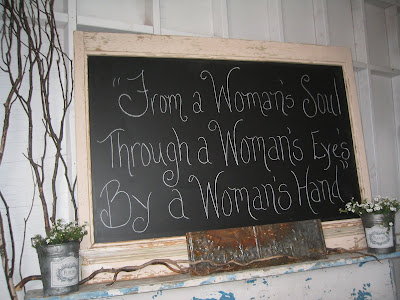 "From a Woman's Soul
Through a Woman's Eye's
By a Woman's Hand"